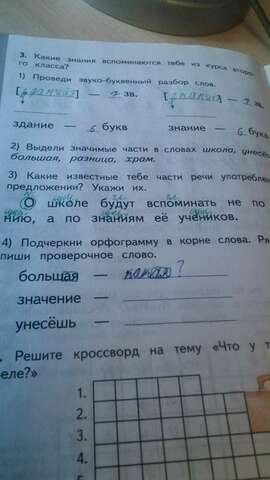 3. Какие знания вспоминаются тебе из курса второ-
го класса?
1) Проведи звуко-буквенный разбор слов.
[ зв. [ зв.
здание — 6 букв знание — 6 букв
2) Выдели значимые части в словах школа, унесё
большая, разница, храм.
3) Какие известные тебе части речи употреблен
предложении? Укажи их.
О школе будут вспоминать не по
нию, а по знаниям её учеников.
4) Подчеркни орфограмму в корне слова. Ря
пиши проверочное слово.
большая — ?
значение —
унесёшь —
Решите кроссворд на тему «Что у т
еле?»
1.
2.
3.
4.
5.